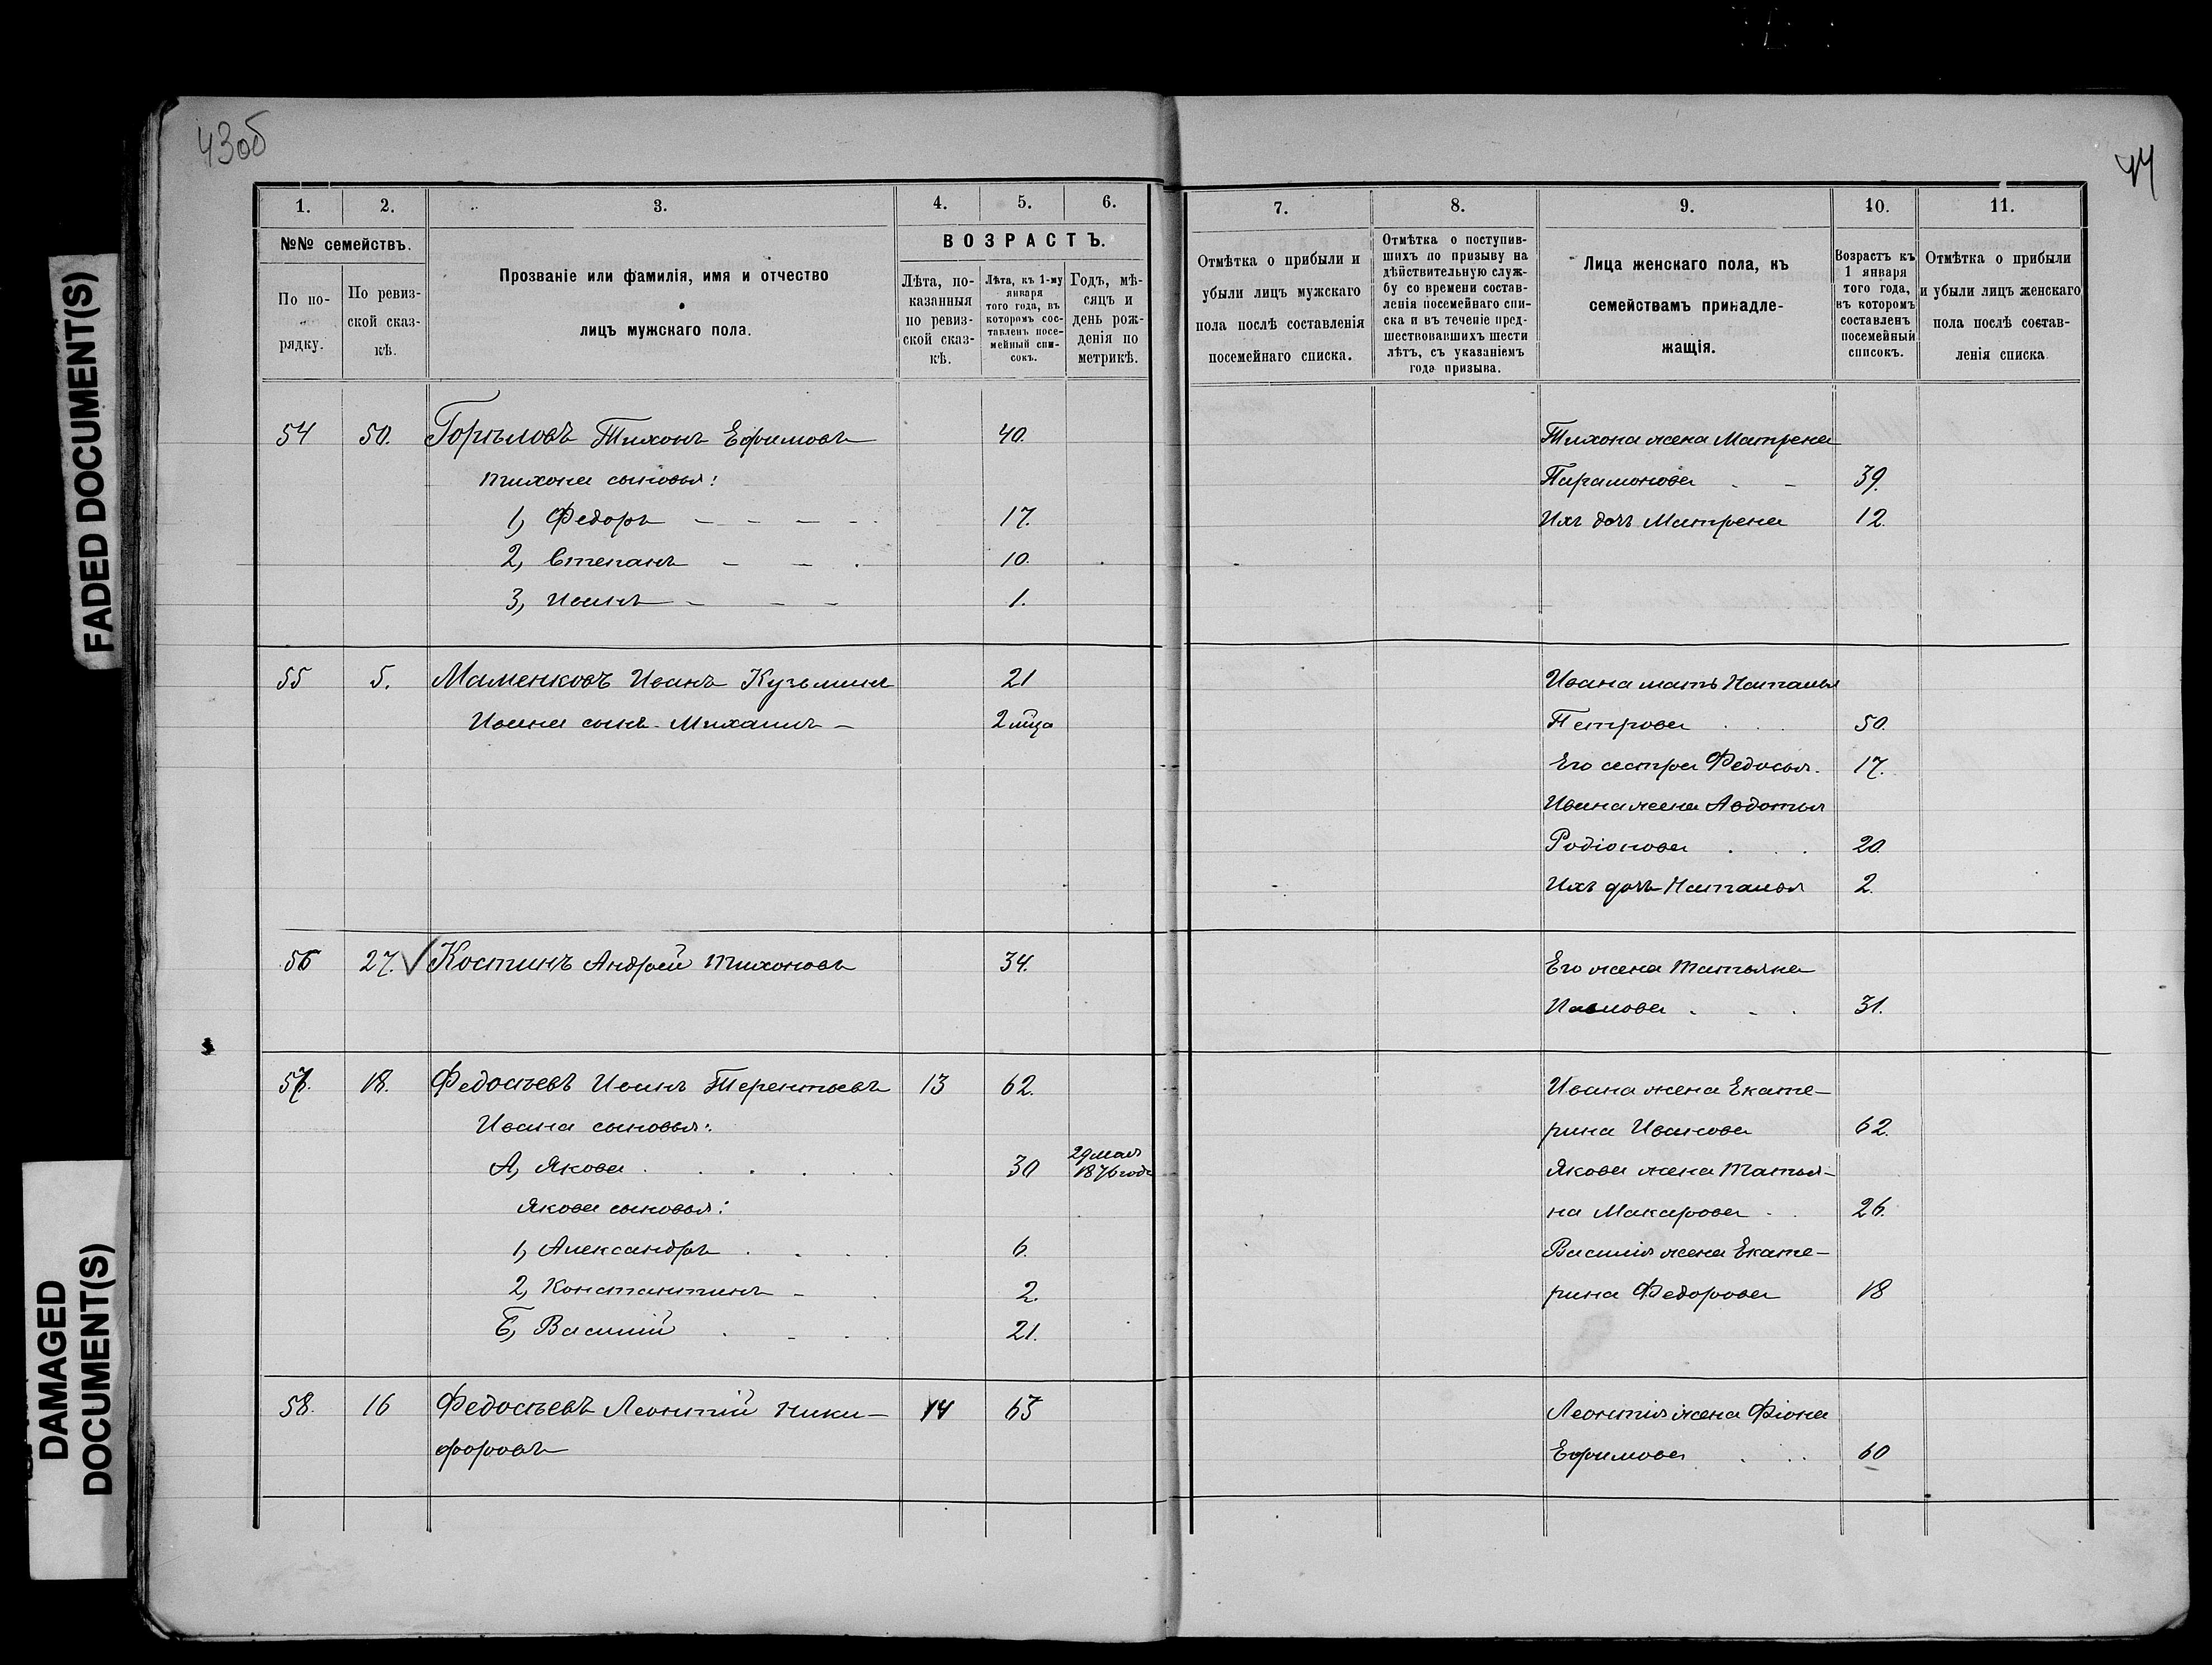 43об
44
FADED DOCUMENT(S)
DAMAGED
DOCUMENT(S)
1. 2. 3. 4. 5. 6.
№№ семействъ.
По по-
рядку.
По ревиз-
ской сказ-
кѣ.
Прозваніе или фамилія, имя и отчество
лицъ мужскаго пола.
ВОЗРАСТЪ.
Лѣта, по-
казанныя
по ревиз-
ской сказ-
кѣ.
Лѣта, къ 1-му
января
того года, въ
которомъ сос-
тавленъ посе-
мейный спи-
сокъ.
Годъ, мѣ-
сяцъ и
день рож-
денія по
метрикѣ.
54 50. Горѣловъ Тихонъ Ефимовъ 40.
Тихона сыновья:
1, Федоръ 17.
2, Степанъ 10.
3, Иванъ 1.
55 5. Маменковъ Иванъ Кузьминъ 21
Ивана сынъ Михаилъ 2 мца
56 27. Костинъ Андрей Тихоновъ 34.
57. 18. Федосѣевъ Иванъ Терентьевъ 13 62.
Ивана сыновья:
А, Яковъ 30 29 мая
1876 года
Якова сыновья:
1, Александръ 6.
2, Константинъ 2.
Б, Василій 21.
58. 16 Федосѣевъ Леонтій Ники-
форовъ
14 63
7. 8. 9. 10. 11.
Отмѣтка о прибыли и
убыли лицъ мужскаго
пола послѣ составленія
посемейнаго списка.
Отмѣтка о поступив-
шихъ по призыву на
дѣйствительную служ-
бу со времени состав-
ленія посемейнаго спи-
ска и въ теченіе пред-
шествовавшихъ шести
лѣтъ, съ указаніемъ
года призыва.
Лица женскаго пола, къ
семействамъ принадле-
жащія.
Возрастъ къ
1 января
того года,
въ которомъ
составленъ
посемейный
списокъ.
Отмѣтка о прибыли
и убыли лицъ женскаго
пола послѣ состав-
ленія списка
Тихона жена Матрена
Парамонова 39.
Ихъ дочь Матрена 12.
Ивана мать Наталья
Петрова 50.
Его сестра Федосья. 17.
Ивана жена Авдотья
Родіонова 20.
Ихъ дочь Наталья 2.
Его жена Татьяна
Павлова 31.
Ивана жена Екате-
рина Иванова 62.
Якова жена Татья-
на Макарова 26.
Василія жена Екате-
рина Федорова 18
Леонтія жена Фіона
Ефимова 60